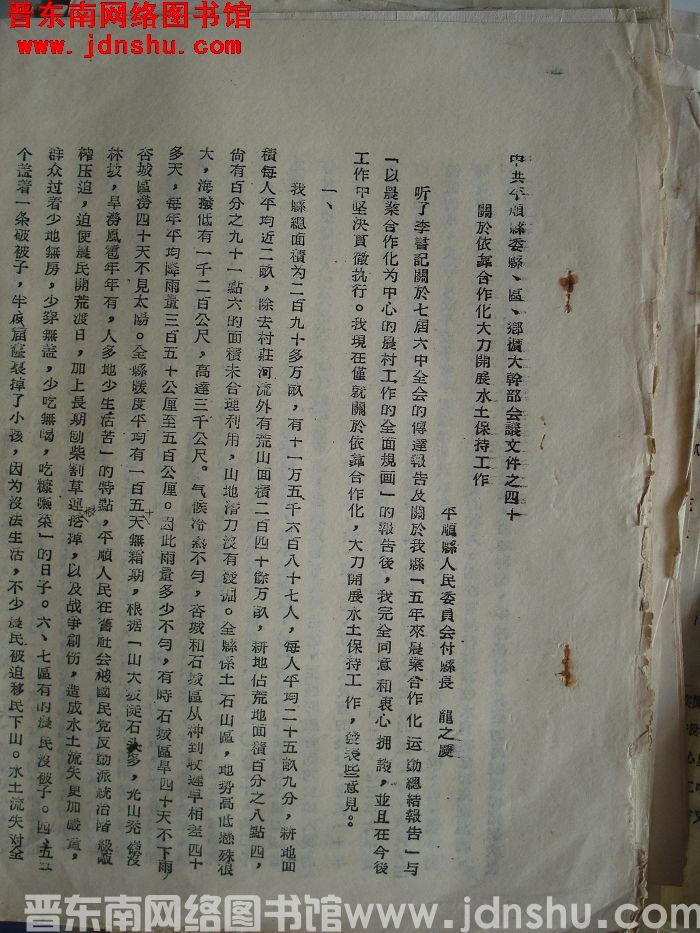 晋东南网络图书馆
www.jdnshu.com
中共平順縣委縣、區、鄉擴大幹部会議文件之四十
關於依靠合作化大力開展水土保持工作
平順縣人民委員会付縣長　龍之慶
听了李書記關於七屆六中全会的傳達報告及關於我縣「五年來農業合作化运動總結報告」与
「以農業合作化为中心的農村工作的全面規画」的報告後，我完全同意和衷心拥護，並且在今後
工作中坚决貫徹执行。我現在僅就關於依靠合作化，大力開展水土保持工作，發表些意見。
一、
我縣總面積为二百九十多万畝，有十一万五千六百八十七人，每人平均二十五畝九分，耕地面
積每人平均近二畝，除去村莊河流外有荒山面積二百四十餘万畝，耕地佔荒地面積百分之八點四，
尚有百分之九十一點六的面積未合理利用，山地潛力沒有發揮。全縣係土石山區，地势高低懸殊很
大，海拨低有一千二百公尺，高達三千公尺。气候冷熱不匀，杏城和石城區从种到收遲早相差四十
多天，每年平均降雨量三百五十公厘至五百公厘。因此雨量多少不匀，有時石城區旱四十天不下雨，
杏城區澇四十天不見太陽。全縣暖度平均有一百五十天無霜期，根据「山大坡陡石头多，光山秃嶺沒
林坡，旱澇風雹年年有，人多地少生活苦」的特點，平順人民在舊社会被國民党反動派統治階級敲
榨压迫，迫使農民開荒渡日，加上長期刨柴割草連挖掉，以及战争創伤，造成水土流失更加嚴重，
群众过着少地無房，少穿無盖，少吃無喝，吃糠嚥菜」的日子。六、七區有的農民沒被子。四、五
个盖着一条破被子，半夜掉了小孩，因为沒法生活，不少農民被迫移民下山。水土流失对全
晋东南网络图书馆 www.jdnshu.com